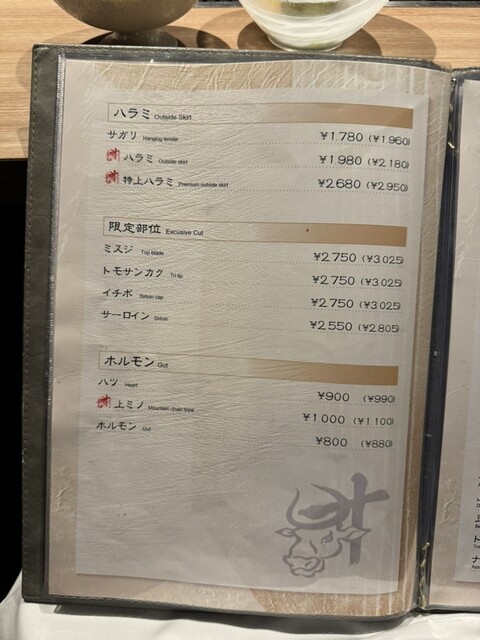 ハラミ Outside Skirt
サガリ Hanging tender ¥1,780 (¥1960)
ハラミ Outside skirt ¥1980 (¥2,180)
特上ハラミ Premium outside skirt ¥2680 (¥2,950)
限定部位 Excusive Cut
ミスジ Top blade ¥2,750 (¥3,025)
トモサンカク Tri tip ¥2,750 (¥3,025)
イチボ Sirloin cap ¥2,750 (¥3,025)
サーロイン Sirloin ¥2,550 (¥2,805)
ホルモン Gut
ハツ Heart ¥900 (¥990)
上ミノ Mountain chain tripe ¥1,000 (¥1,100)
ホルモン Gut ¥800 (¥880)